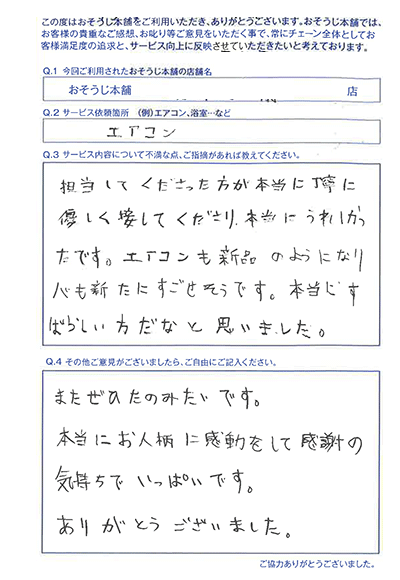 この度はおそうじ本舗をご利用いただき、ありがとうございます。おそうじ本舗では、
お客様の貴重なご感想、お叱り等ご意見をいただく事で、常にチェーン全体としてお
客様満足度の追求と、サービス向上に反映させていただきたいと考えております。
Q.1 今回ご利用されたおそうじ本舗の店舗名
おそうじ本舗 店
Q.2 サービス依頼箇所 (例)エアコン、浴室…など
エアコン
Q.3 サービス内容について不満な点、ご指摘があれば教えてください。
担当してくださった方が本当に丁寧に
優しく接してくださり、本当にうれしかっ
たです。エアコンも新品のようになり
心も新たにすごせそうです。本当にす
ばらしい方だなと思いました。
Q.4 その他ご意見がございましたら、ご自由にご記入ください。
またぜひたのみたいです。
本当にお人柄に感動をして感謝の
気持ちでいっぱいです。
ありがとうございました。
ご協力ありがとうございました。